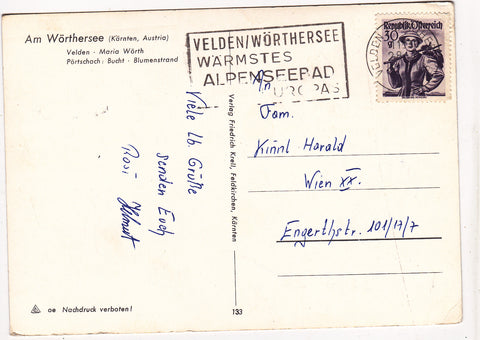 Am Wörthersee (Kärnten, Austria)
Velden · Maria Wörth
Pörtschach: Bucht · Blumenstrand
VELDEN/WÖRTHERSEE
WÄRMSTES
ALPENSEEBAD
EUROPAS
VELDEN
Republik Österreich
30
g
Viele lb. Grüße
senden Euch
Rosi Helmut
Verlag Friedrich Krell, Feldkirchen, Kärnten
An
Fam.
Kinnl Harald
Wien XX.
Engerthstr. 101/17/7
oe Nachdruck verboten!
133